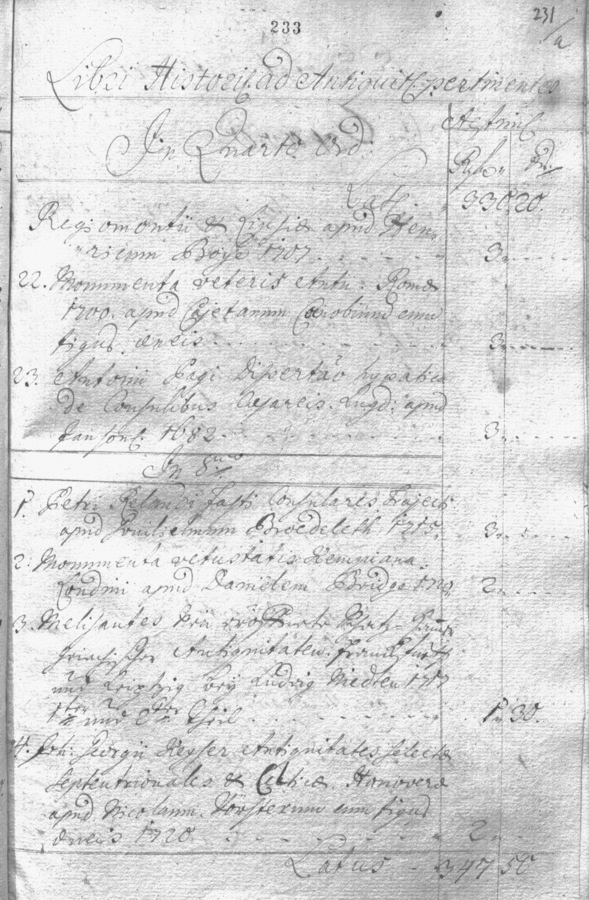 233
231
a
Libri Historici, ad Antiquit: pertinentes
In Quarto Ord:
Æstim:
Lat: 330. 20.
Regiomontii & Lipsiæ apud Hen-
ricum Boye 1707. 3
22. Monumenta veteris Antii: Romæ
1700. apud Cajetanum Cœnobium cum
figus. æneis 3
23. Antonii Pagi Dissertão hypatica
de Consulibus Cæsareis. Lugd: apud
1682 3
In 8vo
1. Petri Relandi fasti Consulares Traject:
apud Guilielmum Broedeleth 1715. 3
2. Monumenta vetustatis Kempiana.
Londini apud Danielem Bridge 1720 2
3. Melisantes
Antiquitäten. Franckfurt
und Leipzig bey Ludvig 1717
1ter und 2ter Theil 1 30.
4. Joh: Georgii Keysler Antiquitates selectæ
Septentrionales & Celticæ. Hanoveræ
apud Nicolaum Försterum cum figus
æneis 1720 2
Latus 347 50